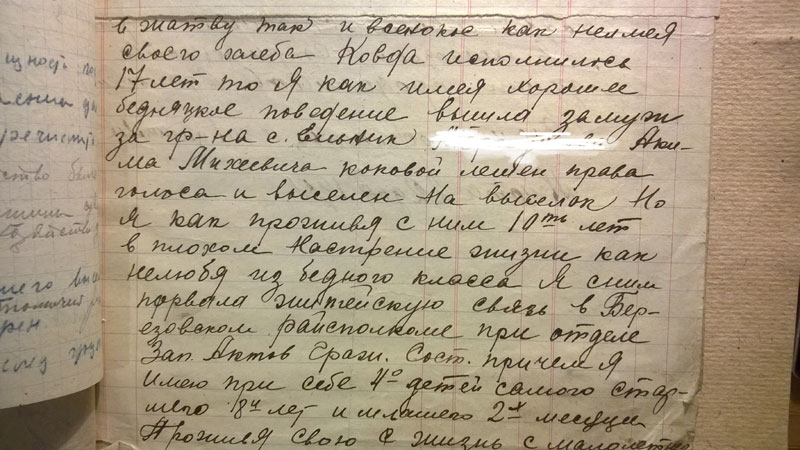 в жатву так и всякое как неимея
своего хлеба Когда исполнилось
17 лет то Я как имея хорошее
бедняцкое поведение вышла замуж
за гр-на с. Аки-
ма Михеевича коковой лешен права
голоса и выселен На выселок Но
Я как проживя с ним 10ть лет
в плохом Настрение жизни как
нелюбя из бедного класса Я сним
порвала житейскую связь в Бер-
езовском райсполкоме при отделе
Зап. Актов Граж. Сост. причем Я
имею при себе 4о детей самого стар-
шего 8ч лет и млашего 2х месяцы
Проживя свою жизнь с малолет